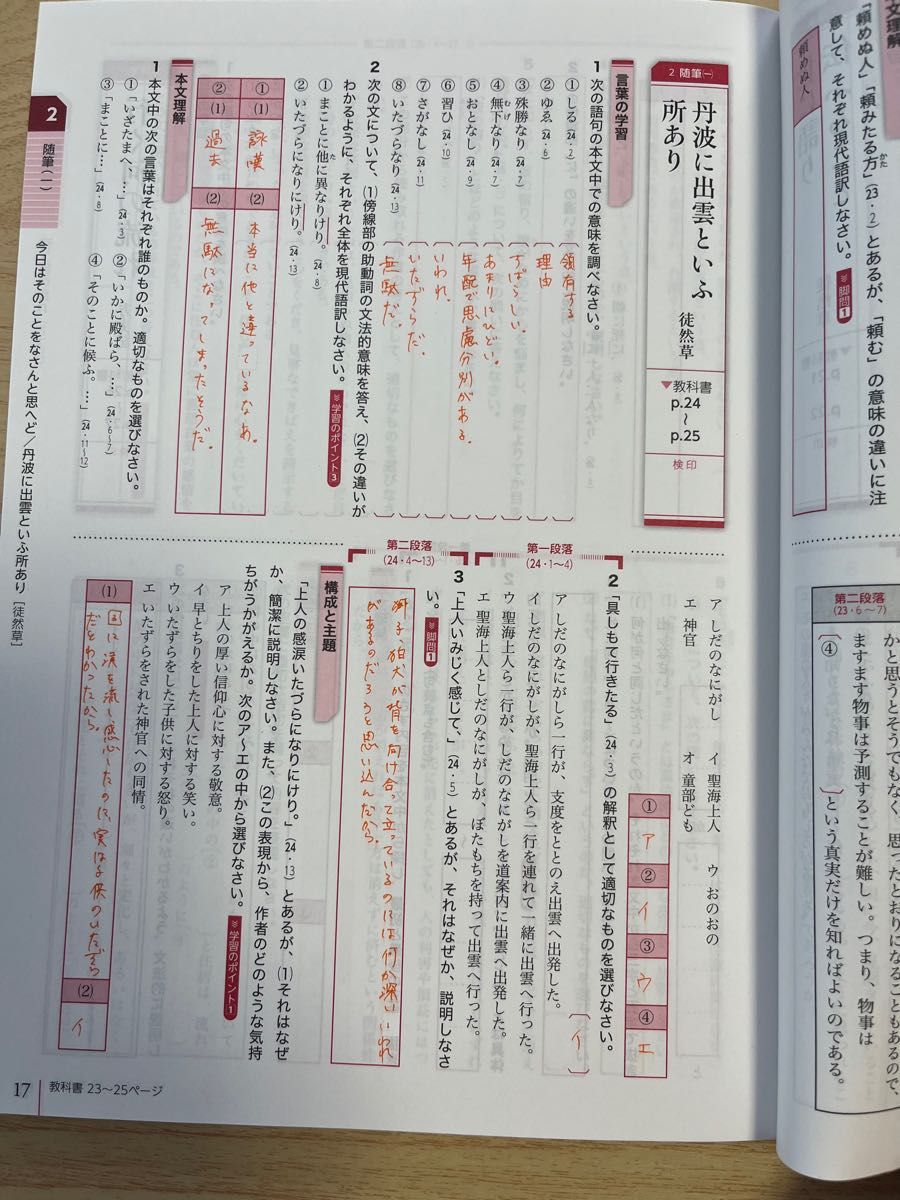 文理解
「頼めぬ人」「頼みたる方」(23・2)とあるが、「頼む」の意味の違いに注
かた
意して、それぞれ現代語訳しなさい。 脚問1
頼めぬ人
第二段落
(23・6〜7)
かと思うとそうでもなく、思ったとおりになることもあるので、
ますます物事は予測することが難しい。つまり、物事は
〔④ 〕という真実だけを知ればよいのである。
2 随筆㈠
丹波に出雲といふ
所あり
徒然草
▼教科書
p.24
〜
p.25
検印
言葉の学習
1 次の語句の本文中での意味を調べなさい。
①しる(24・2) 〔領有する〕
②ゆゑ(24・6) 〔理由〕
③殊勝なり(24・6) 〔すばらしい。〕
④無下なり(24・7) 〔あまりにひどい。〕
むげ
⑤おとなし(24・9) 〔年配で思慮分別がある。〕
⑥習ひ(24・10) 〔いわれ。〕
⑦さがなし(24・11) 〔いたずらだ。〕
⑧いたづらなり(24・13) 〔無駄だ。〕
2 次の文について、⑴傍線部の助動詞の文法的意味を答え、⑵その違いが
わかるように、それぞれ全体を現代語訳しなさい。 学習のポイント3
①まことに他に異なりけり。(24・8)
た
②いたづらになりにけり。(24・13)
① ⑴ 詠嘆 ⑵ 本当に他と違っているなあ。
② ⑴ 過去 ⑵ 無駄になってしまったそうだ。
本文理解
1 本文中の次の言葉はそれぞれ誰のものか。適切なものを選びなさい。
①「いざたまへ、…」(24・3) ②「いかに殿ばら、…」(24・6〜7)
③「まことに…」(24・8) ④「そのことに候ふ。…」(24・11〜12)
ア しだのなにがし イ 聖海上人 ウ おのおの
エ 神官 オ 童部ども
① ア ② イ ③ ウ ④ エ
第一段落
(24・1〜4)
2 「具しもて行きたる」(24・3)の解釈として適切なものを選びなさい。
ア しだのなにがしら一行が、支度をととのえ出雲へ出発した。
イ しだのなにがしが、聖海上人ら一行を連れて一緒に出雲へ行った。
ウ 聖海上人ら一行が、しだのなにがしを道案内に出雲へ出発した。
エ 聖海上人としだのなにがしが、ぼたもちを持って出雲へ行った。
〔イ〕
第二段落
(24・4〜13)
3 「上人いみじく感じて、」(24・5)とあるが、それはなぜか、説明しなさ
い。 脚問1
獅子、狛犬が背を向け合って立っているのには何か深いいわれ
があるのだろうと思い込んだから。
構成と主題
「上人の感涙いたづらになりにけり。」(24・13)とあるが、⑴それはなぜ
か、簡潔に説明しなさい。また、⑵この表現から、作者のどのような気持
ちがうかがえるか。次のア〜エの中から選びなさい。 学習のポイント1
ア 上人の厚い信仰心に対する敬意。
イ 早とちりをした上人に対する笑い。
ウ いたずらをした子供に対する怒り。
エ いたずらをされた神官への同情。
⑴ に涙を流し感心したのに、実は子供のいたずら
だとわかったから。
⑵ イ
2
随筆(一)
今日はそのことをなさんと思へど/丹波に出雲といふ所あり[徒然草]
17 教科書 23〜25ページ